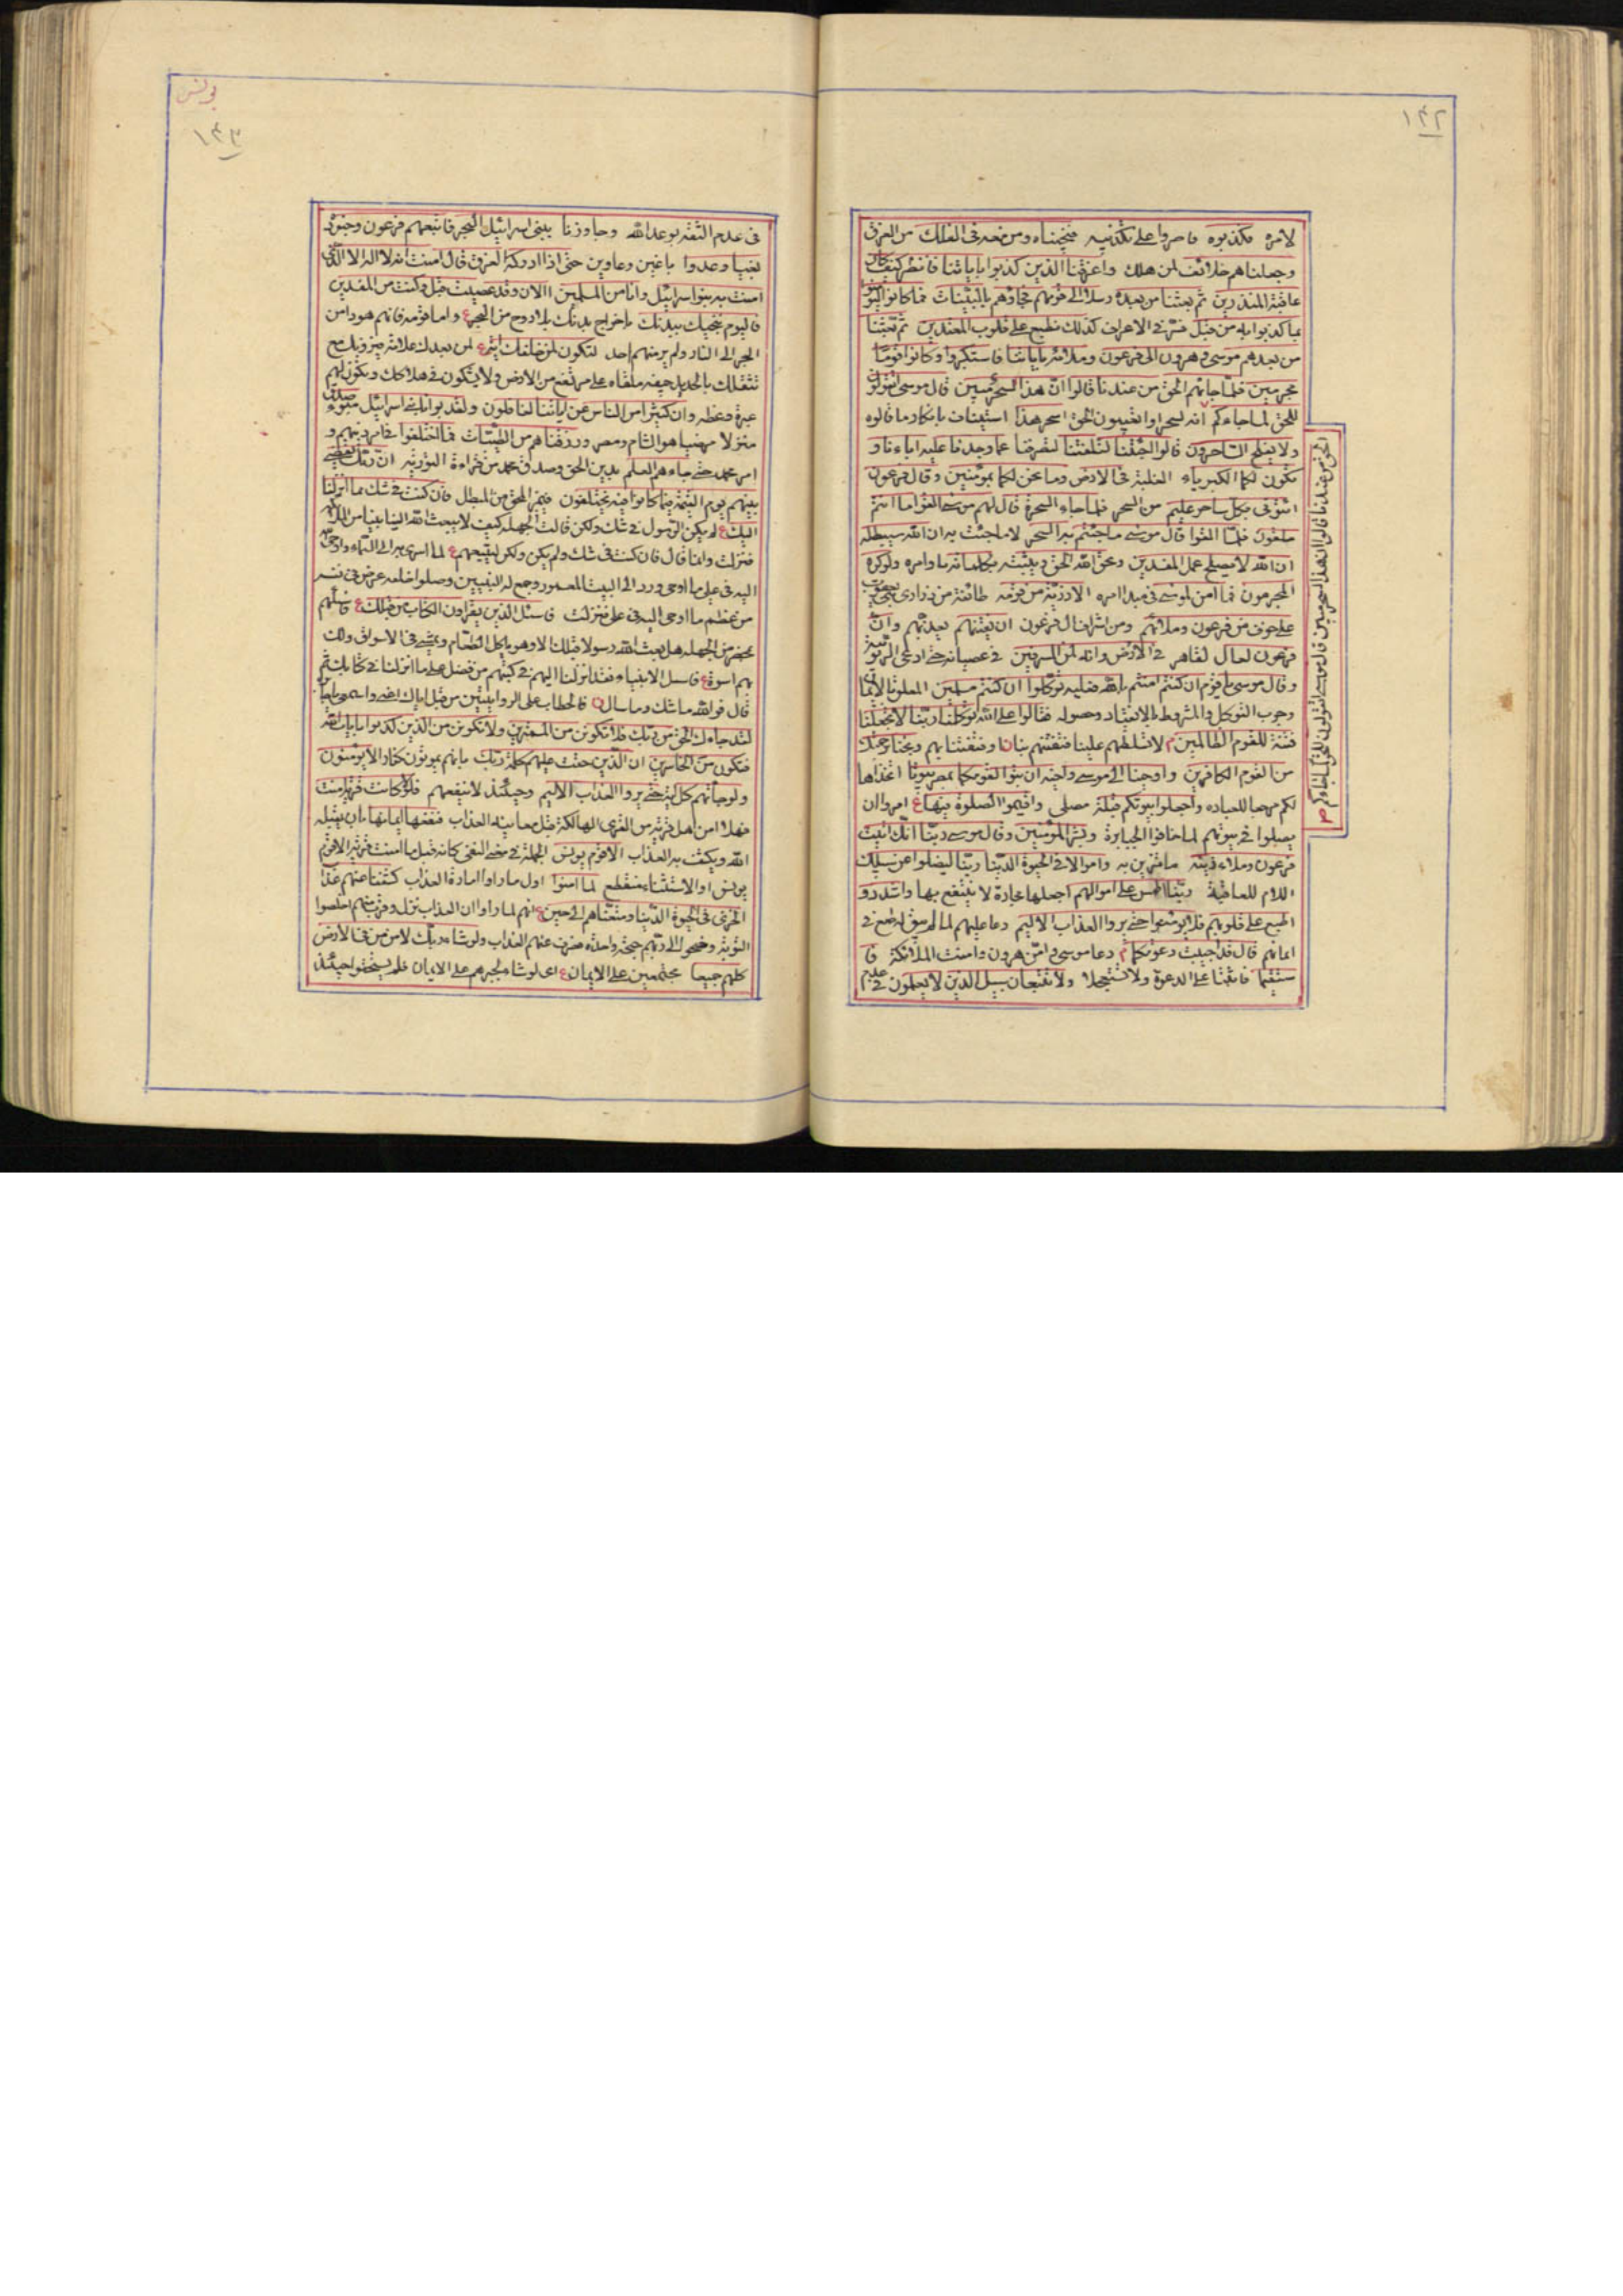 ١٤٢
لامره فكذبوه فاصروا على تكذيبه فنجيناه ومن معه في الفلك من الغرق
وجعلناهم خلائف لمن هلك واغرقنا الذين كذبوا باياتنا فانظر كيف كان
عاقبة المنذرين ثم بعثنا من بعده رسلا الى قومهم فجاؤهم بالبينات فما كانوا ليؤمنوا
بما كذبوا به من قبل في الاعراف كذلك نطبع على قلوب المعتدين ثم بعثنا
من بعدهم موسى وهرون الى فرعون وملائه باياتنا فاستكبروا وكانوا قوما
مجرمين فلما جائهم الحق من عندنا قالوا ان هذا لسحر مبين قال موسى اتقولون
للحق لما جاءكم انه لسحر اسحر هذا استيناف بانكار ما قالوه
ولا يفلح الساحرون قالوا اجئتنا لتلفتنا لتصرفنا عما وجدنا عليه اباءنا و
تكون لكما الكبرياء في الارض وما نحن لكما بمؤمنين وقال فرعون
ائتوني بكل ساحر عليم من السحر فلما جاء السحرة قال لهم موسى القوا ما انتم
ملقون فلما القوا قال موسى ما جئتم به السحر لا ما جئت به ان الله سيبطله
ان الله لا يصلح عمل المفسدين ويحق الله الحق ويثبته بكلماته باوامره ولو كره
المجرمون فما امن لموسى في مبدا امره الا ذرية من قومه طائفة من ذراري بني يعقوب
على خوف من فرعون وملائهم ومن اشراف ال فرعون ان يفتنهم يعذبهم وان
فرعون لعال لقاهر في الارض وانه لمن المسرفين في عصيانه حتى ادعى الربوبية
وقال موسى يا قوم ان كنتم امنتم بالله فعليه توكلوا ان كنتم مسلمين
وجوب التوكل والمشروط بالانقياد وحصوله فقالوا على الله توكلنا ربنا لا تجعلنا
فتنة للقوم الظالمين لا تسلطهم علينا فتفتنهم بنا ونجنا برحمتك
من القوم الكافرين واوحينا الى موسى واخيه ان تبوا لقومكما بمصر بيوتا اتخذاها
لكم مرجعا للعباده واجعلوا بيوتكم قبلة مصلى واقيموا الصلوة فيها امروا ان
يصلوا في بيوتهم لما خافوا الجبابرة وبشر المؤمنين وقال موسى ربنا انك اتيت
فرعون وملاءه زينة ما تزين به واموالا في الحيوة الدنيا ربنا ليضلوا عن سبيلك
اللام للعاقبة ربنا اطمس على اموالهم اجعلها حجارة لا ينتفع بها واشدد و
اطبع على قلوبهم فلا يؤمنوا حتى يروا العذاب الاليم دعا عليهم لما لم يبق له طمع في
ايمانهم قال قد اجيبت دعوتكما دعا موسى وامن هرون وامنت الملائكة فا
ستقيما فاثبتا على الدعوة ولا تستعجلا ولا تتبعان سبيل الذين لا يعلمون
الحق من عندنا قالوا ان هذا لسحر مبين قال موسى اتقولون للحق لما جاءكم
يونس
١٤٣
في عدم الثقة بوعد الله وجاوزنا ببني اسرائيل البحر فاتبعهم فرعون وجنوده
بغيا وعدوا باغين وعادين حتى اذا ادركه الغرق قال امنت انه لا اله الا الذي
امنت به بنوا اسرائيل وانا من المسلمين الان وقد عصيت قبل وكنت من المفسدين
فاليوم ننجيك ببدنك باخراج بدنك بلا روح من البحر واما قومه فانهم هووا من
البحر الى النار ولم ير منهم احد لتكون لمن خلفك اية لمن بعدك علامة
تثقلك بالحديد جيفة ملقاه على مرتفع من الارض
عبرة وعظه وان كثيرا من الناس عن اياتنا لغافلون ولقد بوانا بني اسرائيل مبوء صدق
منزلا مرضيا هو الشام ومصر ورزقناهم من الطيبات فما اختلفوا في امر دينهم و
امر محمد حتى جاءهم العلم بدين الحق وصدق محمد من قراءة التورية ان ربك يقضي
بينهم يوم القيمة فيما كانوا فيه يختلفون فيميز المحق من المبطل فان كنت في شك مما انزلنا
اليك لم يكن الرسول في شك ولكن قالت الجهلة كيف لا يبعث الله الينا نبيا من الملائكة
فنزلت وانما قال فان كنت في شك ولم يكن ولكن ليتبعهم لما اسري به الى السماء واوحى
اليه في علي ما اوحى ورد الى البيت المعمور وجمع له النبيين وصلوا خلفه عرض في نفسه
من عظم ما اوحي اليه في علي فنزلت فاسئل الذين يقراون الكتاب من قبلك فاسئلهم
بمحضر من الجهلة هل بعث الله رسولا قبلك الا وهو ياكل الطعام ويمشي في الاسواق ولك
بهم اسوة فاسل الانبياء فقد انزلنا اليهم في كتبهم من فضل علي ما انزلنا في كتابك ثم
قال فوالله ما شك وما سال فالخطاب على الروايتين من قبيل اياك اعني واسمعي يا جارة
لقد جاءك الحق من ربك فلا تكونن من الممترين ولا تكونن من الذين كذبوا بايات الله
فتكون من الخاسرين ان الذين حقت عليهم كلمة ربك بانهم يموتون كفارا لا يؤمنون
ولو جائتهم كل اية حتى يروا العذاب الاليم وحينئذ لا ينفعهم فلولا كانت قرية امنت
فهلا امن اهل قرية من القرى الهالكة قبل معاينة العذاب فنفعها ايمانها بان يقبله
الله ويكشف به العذاب الا قوم يونس الجملة في معنى النفي كانه قيل ما امنت قرية الا قوم
يونس او الاستثناء منقطع لما امنوا اول ما راوا امارة العذاب كشفنا عنهم عذاب
الخزي في الحيوة الدنيا ومتعناهم الى حين انهم لما راوا ان العذاب نزل اخلصوا
التوبة وضجوا الى ربهم ضجة واحدة فصرف عنهم العذاب ولو شاء ربك لامن من في الارض
كلهم جميعا مجتمعين على الايمان اي لو شاء لجبرهم على الايمان فلم يستحقوا حينئذ